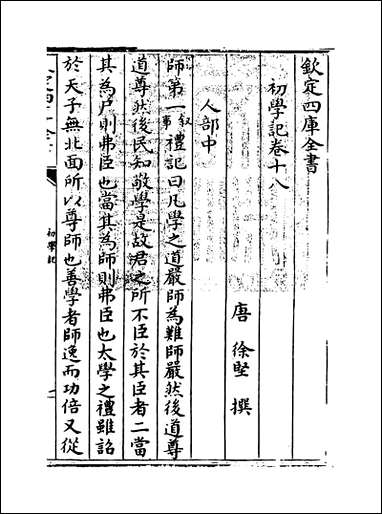 欽定四庫全書
初學記卷十八
唐 徐堅 撰
人部中
師第一 叙事 禮記曰凡學之道嚴師為難師嚴然後道尊
道尊然後民知敬學是故君之所不臣於其臣者二當
其為尸則弗臣也當其為師則弗臣也太學之禮雖詔
於天子無北面所以尊師也善學者師逸而功倍又從
初學記